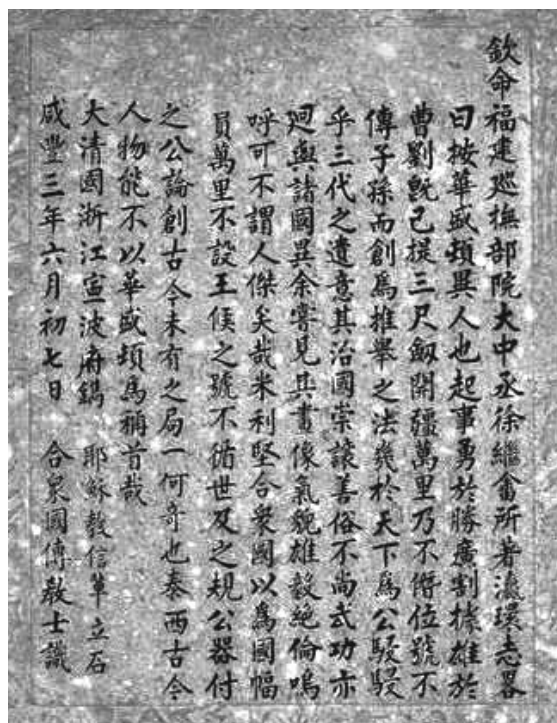 欽命福建巡撫部院大中丞徐繼畬所著瀛環志畧
曰按華盛頓異人也起事勇於勝廣割據雄於
曹劉旣已提三尺劒開疆萬里乃不僭位號不
傳子孫而創爲推舉之法幾於天下爲公駸駸
乎三代之遺意其治國崇讓善俗不尚武功亦
迥與諸國異余嘗見其畫像氣貌雄毅絕倫嗚
呼可不謂人傑矣哉米利堅合衆國以爲國幅
員萬里不設王侯之號不循世及之規公器付
之公論創古今未有之局一何奇也泰西古今
人物能不以華盛頓爲稱首哉
大清國浙江寧波府鐫 耶穌教信輩立石
咸豐三年六月初七日 合衆國傳教士識